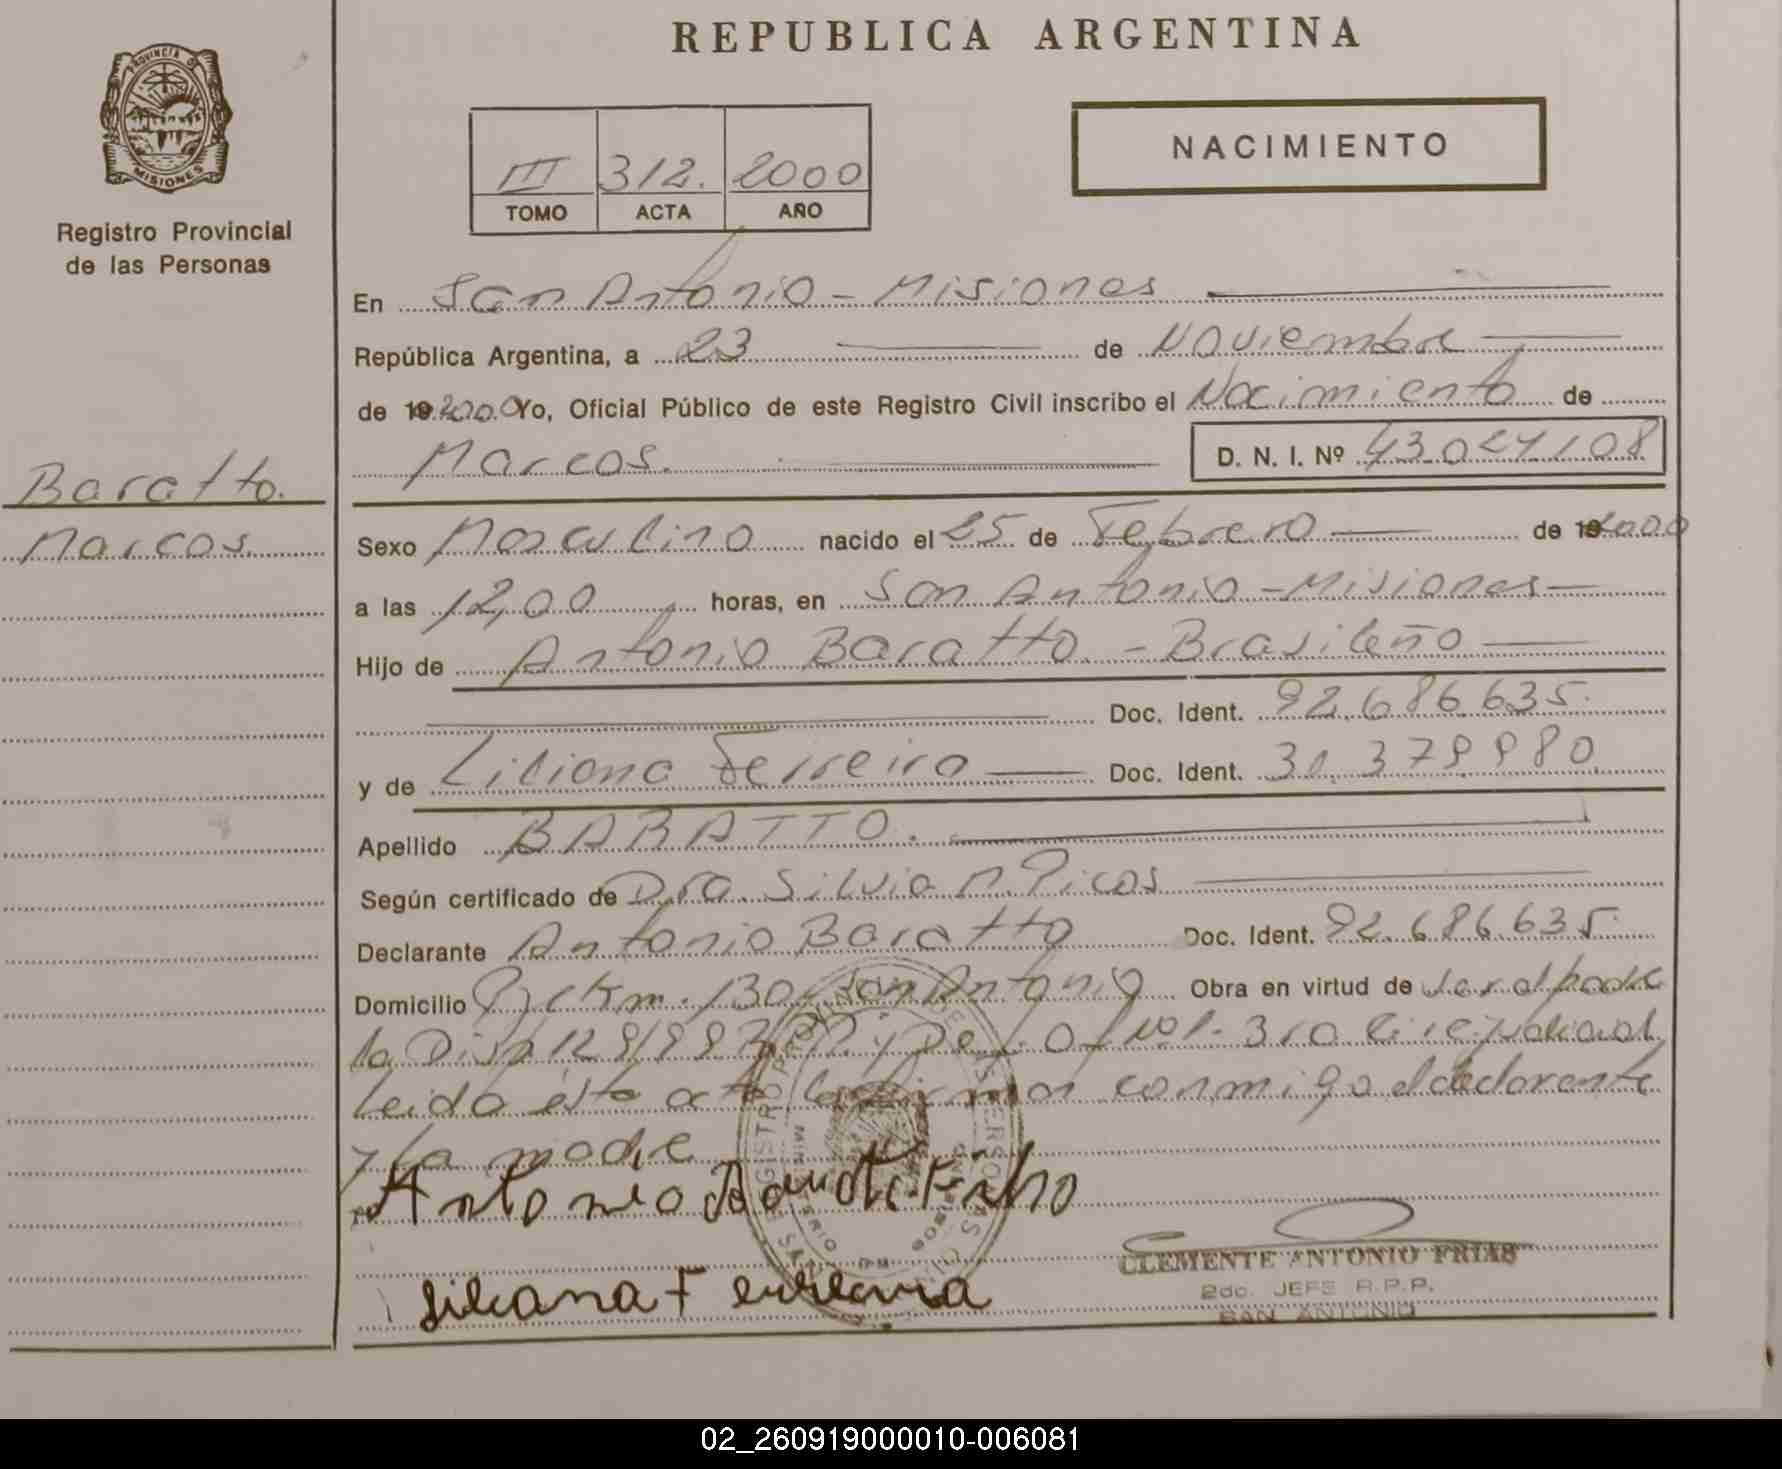 REPUBLICA ARGENTINA
PROVINCIA DE MISIONES
Registro Provincial
de las Personas
III 312. 2000
TOMO ACTA AÑO
NACIMIENTO
En San Antonio - Misiones
República Argentina, a 23 de Noviembre
de 2000 Yo, Oficial Público de este Registro Civil inscribo el Nacimiento de
Marcos. D. N. I. Nº
Baratto.
Marcos.
Sexo Masculino nacido el 25 de Febrero de 2000
a las 12,00 horas, en San Antonio - Misiones
Hijo de Antonio Baratto - Brasileño
Doc. Ident. 92.686.635.
y de Liliana Ferreira Doc. Ident.
Apellido BARATTO.
Según certificado de Dra. Silvia Picos
Declarante Antonio Baratto Doc. Ident. 92.686.635.
Domicilio Km. 130 San Antonio Obra en virtud de ser el padre
la Judicial
Leida ésta acta la firman conmigo el declarante
y la madre
Antonio
Liliana
CLEMENTE ANTONIO FRIAS
2do. JEFE R.P.P.
SAN ANTONIO
02_260919000010-006081